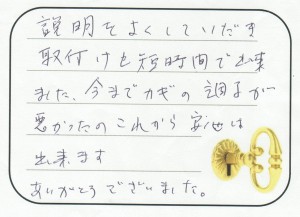 説明をよくしていただき
取付けも短時間で出来
ました、今までカギの調子が
悪かったのこれから安心は
出来ます
ありがとうございました。